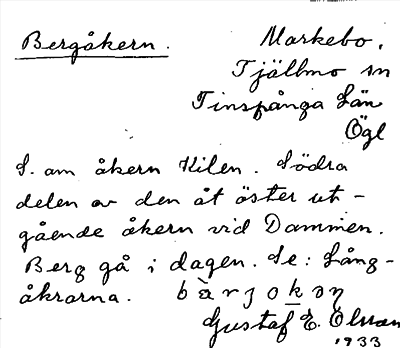 Bergåkern. Markebo.
Tjällmo sn
Finspånga län
Ögl
S. om åkern Kilen. Södra
delen av den åt öster ut-
gående åkern vid Dammen.
Berg gå i dagen. Se: Lång-
åkrarna. bàrjokəṇ
Gustaf E. Olsson
1933